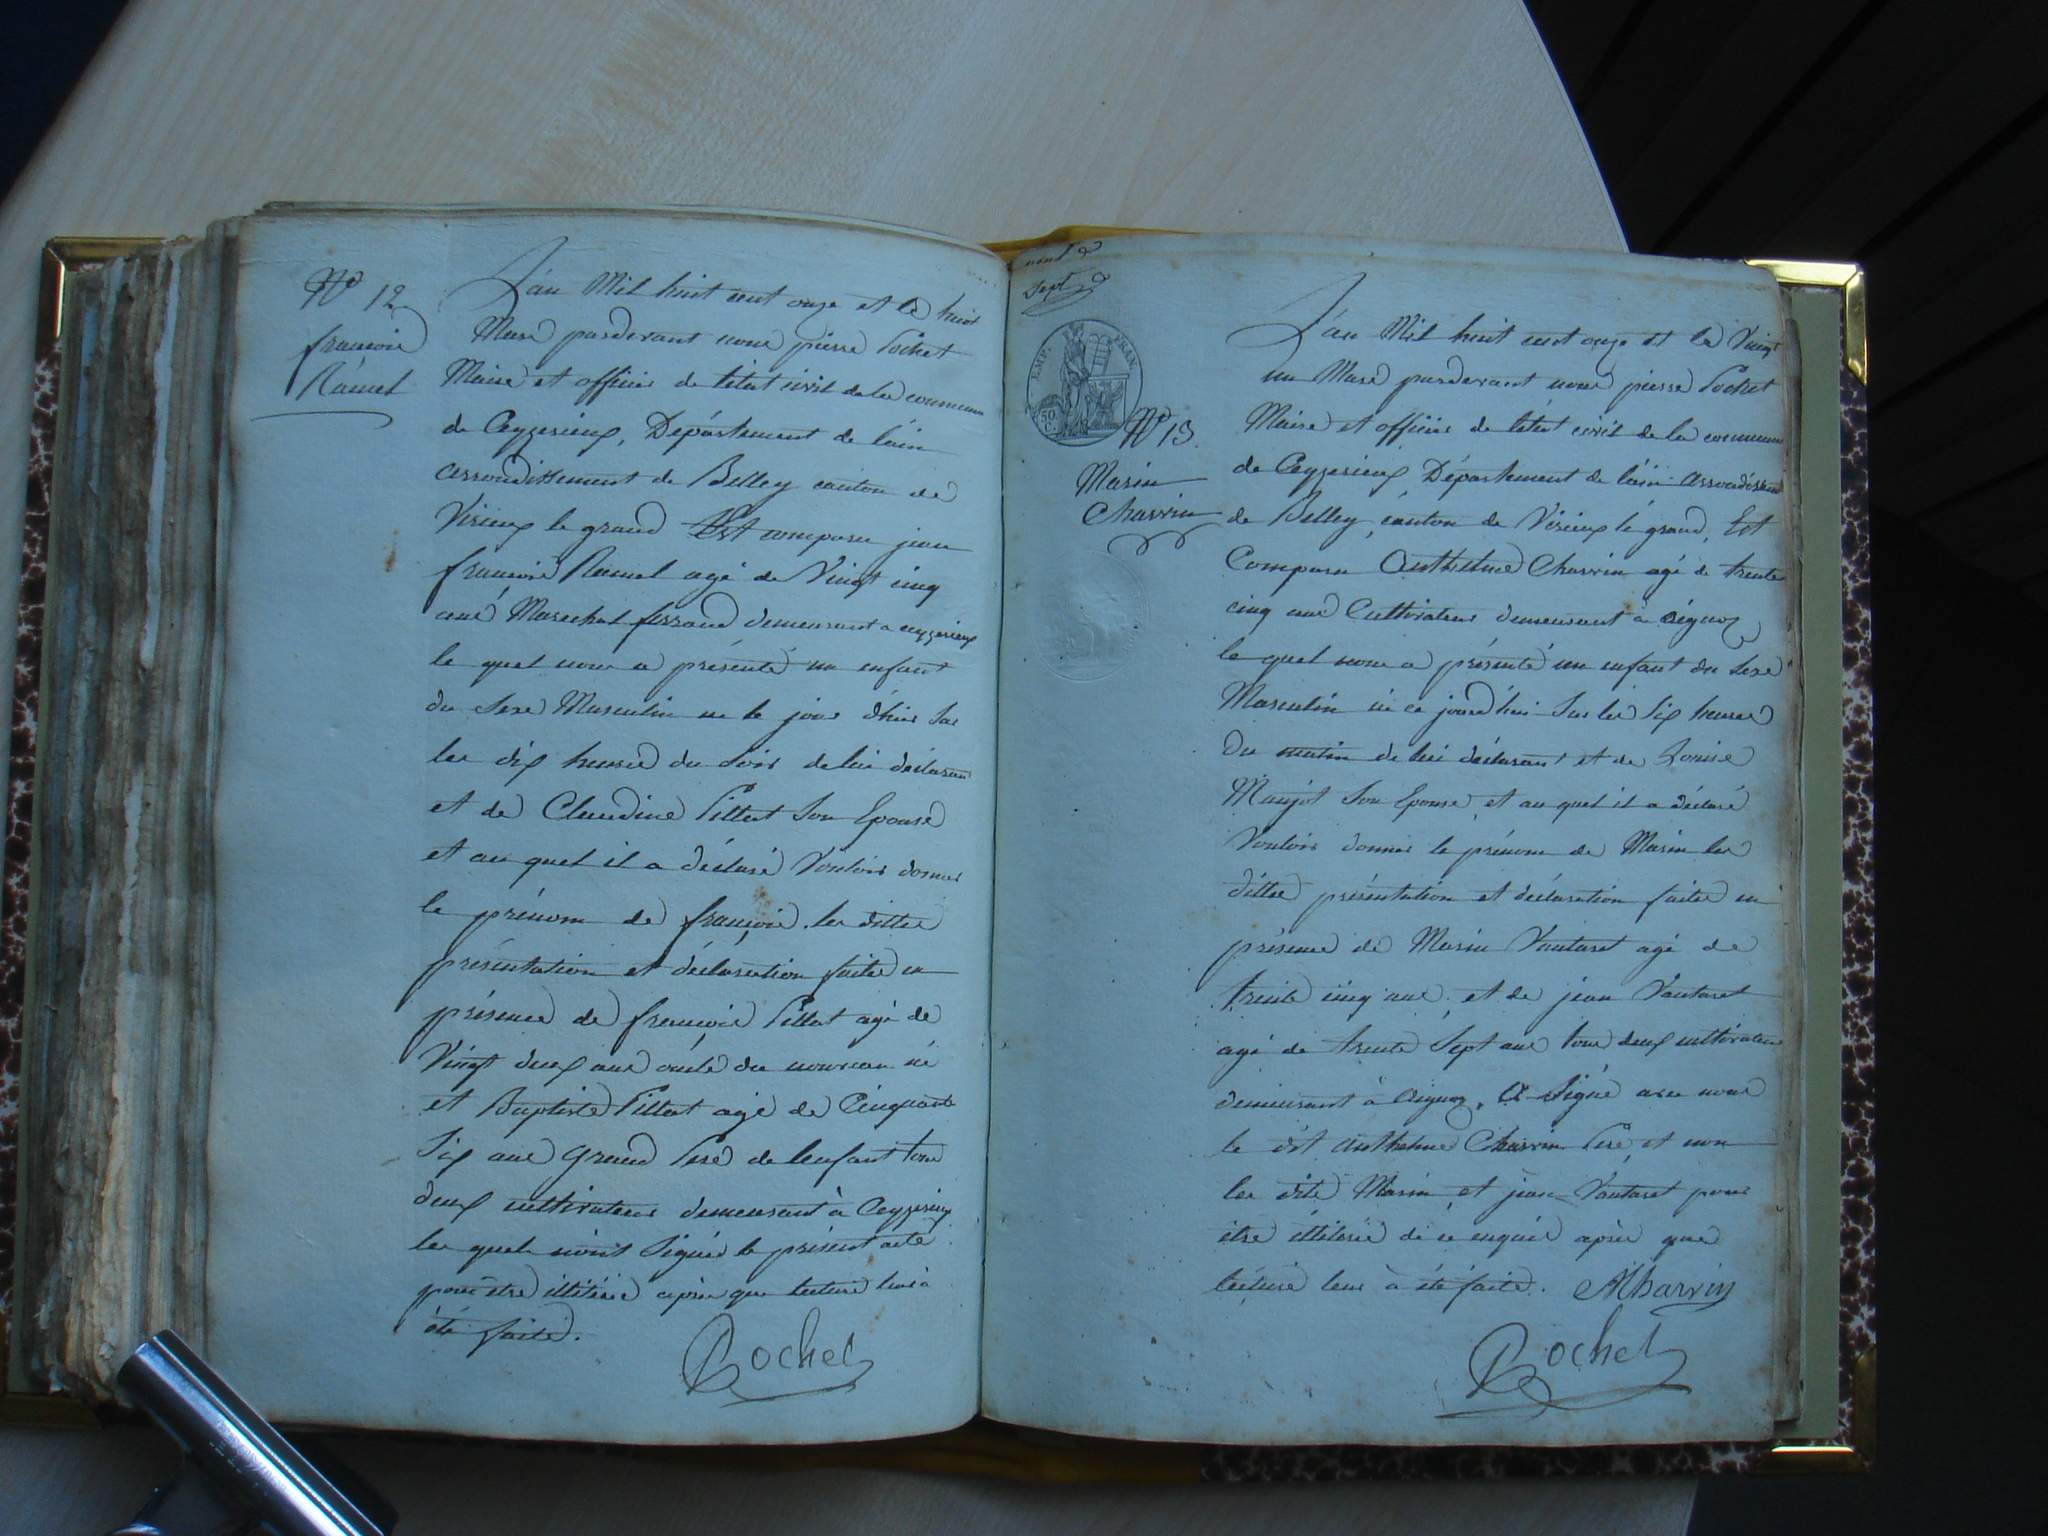 N° 12
françois
Ramel
L'an Mil huit cent onze et le huit
Mars pardevant nous pierre Pochet
Maire et officier de létat civil de la commune
de Ceyzerieux, Département de l'ain
arrondissement de Belley canton de
Virieux le grand Est comparu jean
françois Ramel agé de Vingt cinq
ans Marechal ferrand demeurant a ceyzerieux
le quel nous a présenté un enfant
du sexe Masculin ne le jour d'hier sur
les dix heures du soir de lui déclarant
et de Claudine Pillet Son Epouse
et au quel il a déclaré Vouloir donner
le prénom de françois. les dittes
présentation et déclaration faites en
présence de françois Pillet agé de
Vingt deux ans oncle du nouveau né
et Baptiste Pillet agé de Cinquante
Six ans Grand Pere de lenfant tous
deux cultivateurs demeurant à Ceyzerieux
les quels n'ont Signés le présent acte
pour être illitérés après que lecture leur à
été faite.
Pochet
vent &
Sept &
EMP. FRAN.
50 C.
N° 13.
Marin
Charvin
L'an Mil huit cent onze et le Vingt
un Mars pardevant nous pierre Pochet
Maire et officier de létat civil de la commune
de Ceyzerieux Département de l'ain arrondissem
de Belley, canton de Virieux le grand, Est
Comparu Anthelme Charvin agé de trente
cinq ans Cultivateur demeurant à aignoz
le quel nous a présenté un enfant du Sexe
Masculin né ce jourd'hui Sur les Six heures
du matin de lui déclarant et de Louise
Maujot Son Epouse, et au quel il a déclaré
Vouloir donner le prénom de Marin les
dittes présentation et déclaration faites en
présence de Marin Vautaret agé de
trente cinq ans, et de jean Vautaret
agé de trente Sept ans tous deux cultivateurs
demeurant à aignoz, A Signé avec nous
le dit anthelme Charvin Pere, et non
les dits Marin et jean Vautaret pour
être illiterés de ce enquis après que
lecture leur à été faite. ACharvin
Pochet